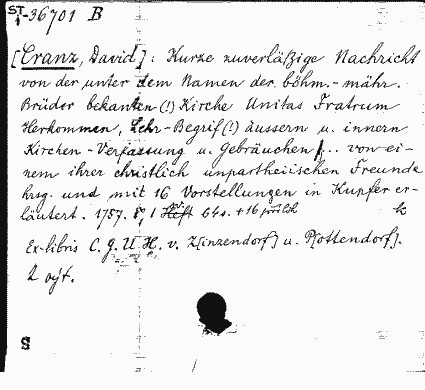 ST 1-36701 B
[Cranz, David]: Kurze zuverläßige Nachricht
von der unter dem Namen der böhm.-mähr.
Brüder bekanten (!) Kirche Unitas Fratrum
Herkommen, Lehr-Begrif (!) äussern u. innern
Kirchen-Verfassung u. Gebräuchen ... von ei-
nem ihrer christlich unpartheiischen Freunde
hrsg. und mit 16 Vorstellungen in Kupfer er-
läutert. 1757. 1 64 S. + 16
Ex-libris C. G. U. H. v. Z[inzendorf] u. P[ottendorf].
2
S